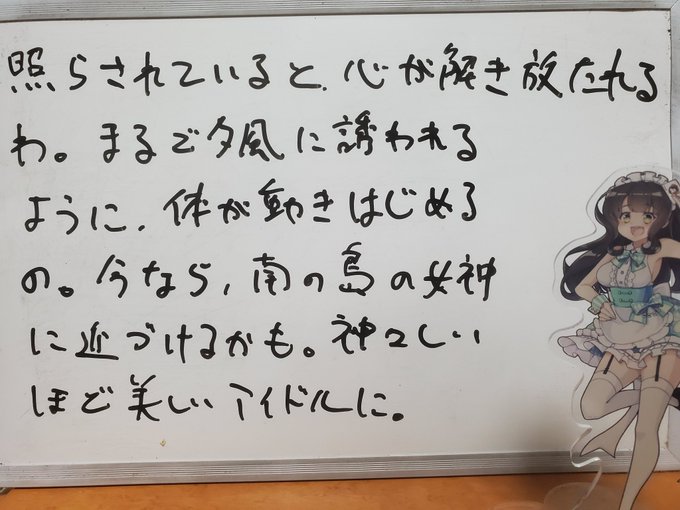 照らされていると、心が解き放たれる
わ。まるで夕風に誘われる
ように、体が動きはじめる
の。今なら、南の島の女神
に近づけるかも。神々しい
ほど美しいアイドルに。